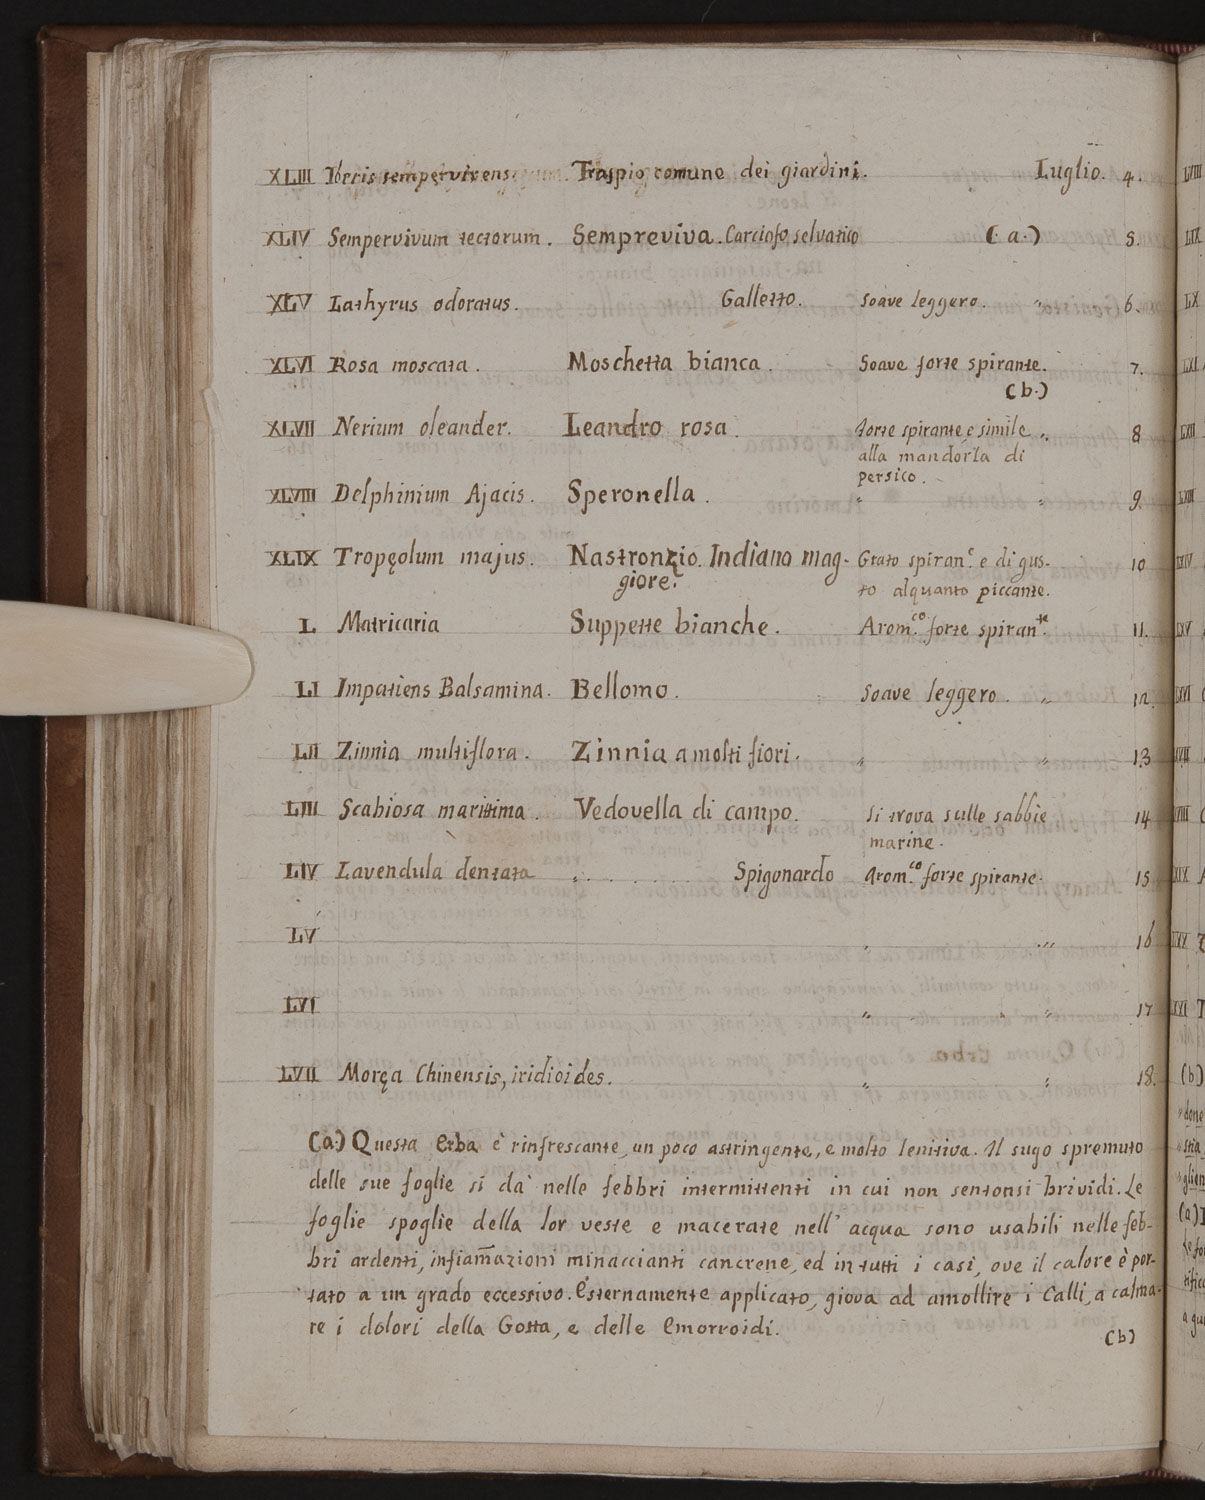 XLIII Iberis sempervirens. Traspio comune dei giardini. Luglio. 4.
XLIV Sempervivum tectorum. Sempreviva. Carciofo selvatico (a.) 5.
XLV Lathyrus odoratus. Galletto. Soave leggero. " 6.
XLVI Rosa moscata. Moschetta bianca. Soave forte spirante. 7.
(b.)
XLVII Nerium oleander. Leandro rosa. forte spirante, e simile " 8
alla mandorla di
persico.
XLVIII Delphinium Ajacis. Speronella. " " 9.
XLIX Tropęolum majus. Nastronzio. Indiano mag- Grato spiran.e e di gus- 10
giore. to alquanto piccante.
L Matricaria Suppette bianche. Arom.co forte spiran.te 11.
LI Impatiens Balsamina. Bellomo. Soave leggero. " 12.
LII Zinnia multiflora. Zinnia a molti fiori. " " 13
LIII Scabiosa marittima. Vedovella di campo. Si trova sulle sabbie 14
marine.
LIV Lavendula dentata " . . . . . . Spigonardo Arom.co forte spirante. 15
LV " " 16
LVI " " 17
LVII Moręa Chinensis, iridioides. " " 18.
(a.) Questa Erba è rinfrescante, un poco astringente, e molto lenitiva. Il sugo spremuto
delle sue foglie si dà nelle febbri intermittenti in cui non sentonsi brividi. Le
foglie spoglie della lor veste e macerate nell' acqua sono usabili nelle feb-
bri ardenti, infiam̅azioni minaccianti cancrene, ed in tutti i casi, ove il calore è por-
tato a un grado eccessivo. Esternamente applicato, giova ad amollire i Calli, a calma-
re i dolori della Gotta, e delle Emorroidi.
(b)